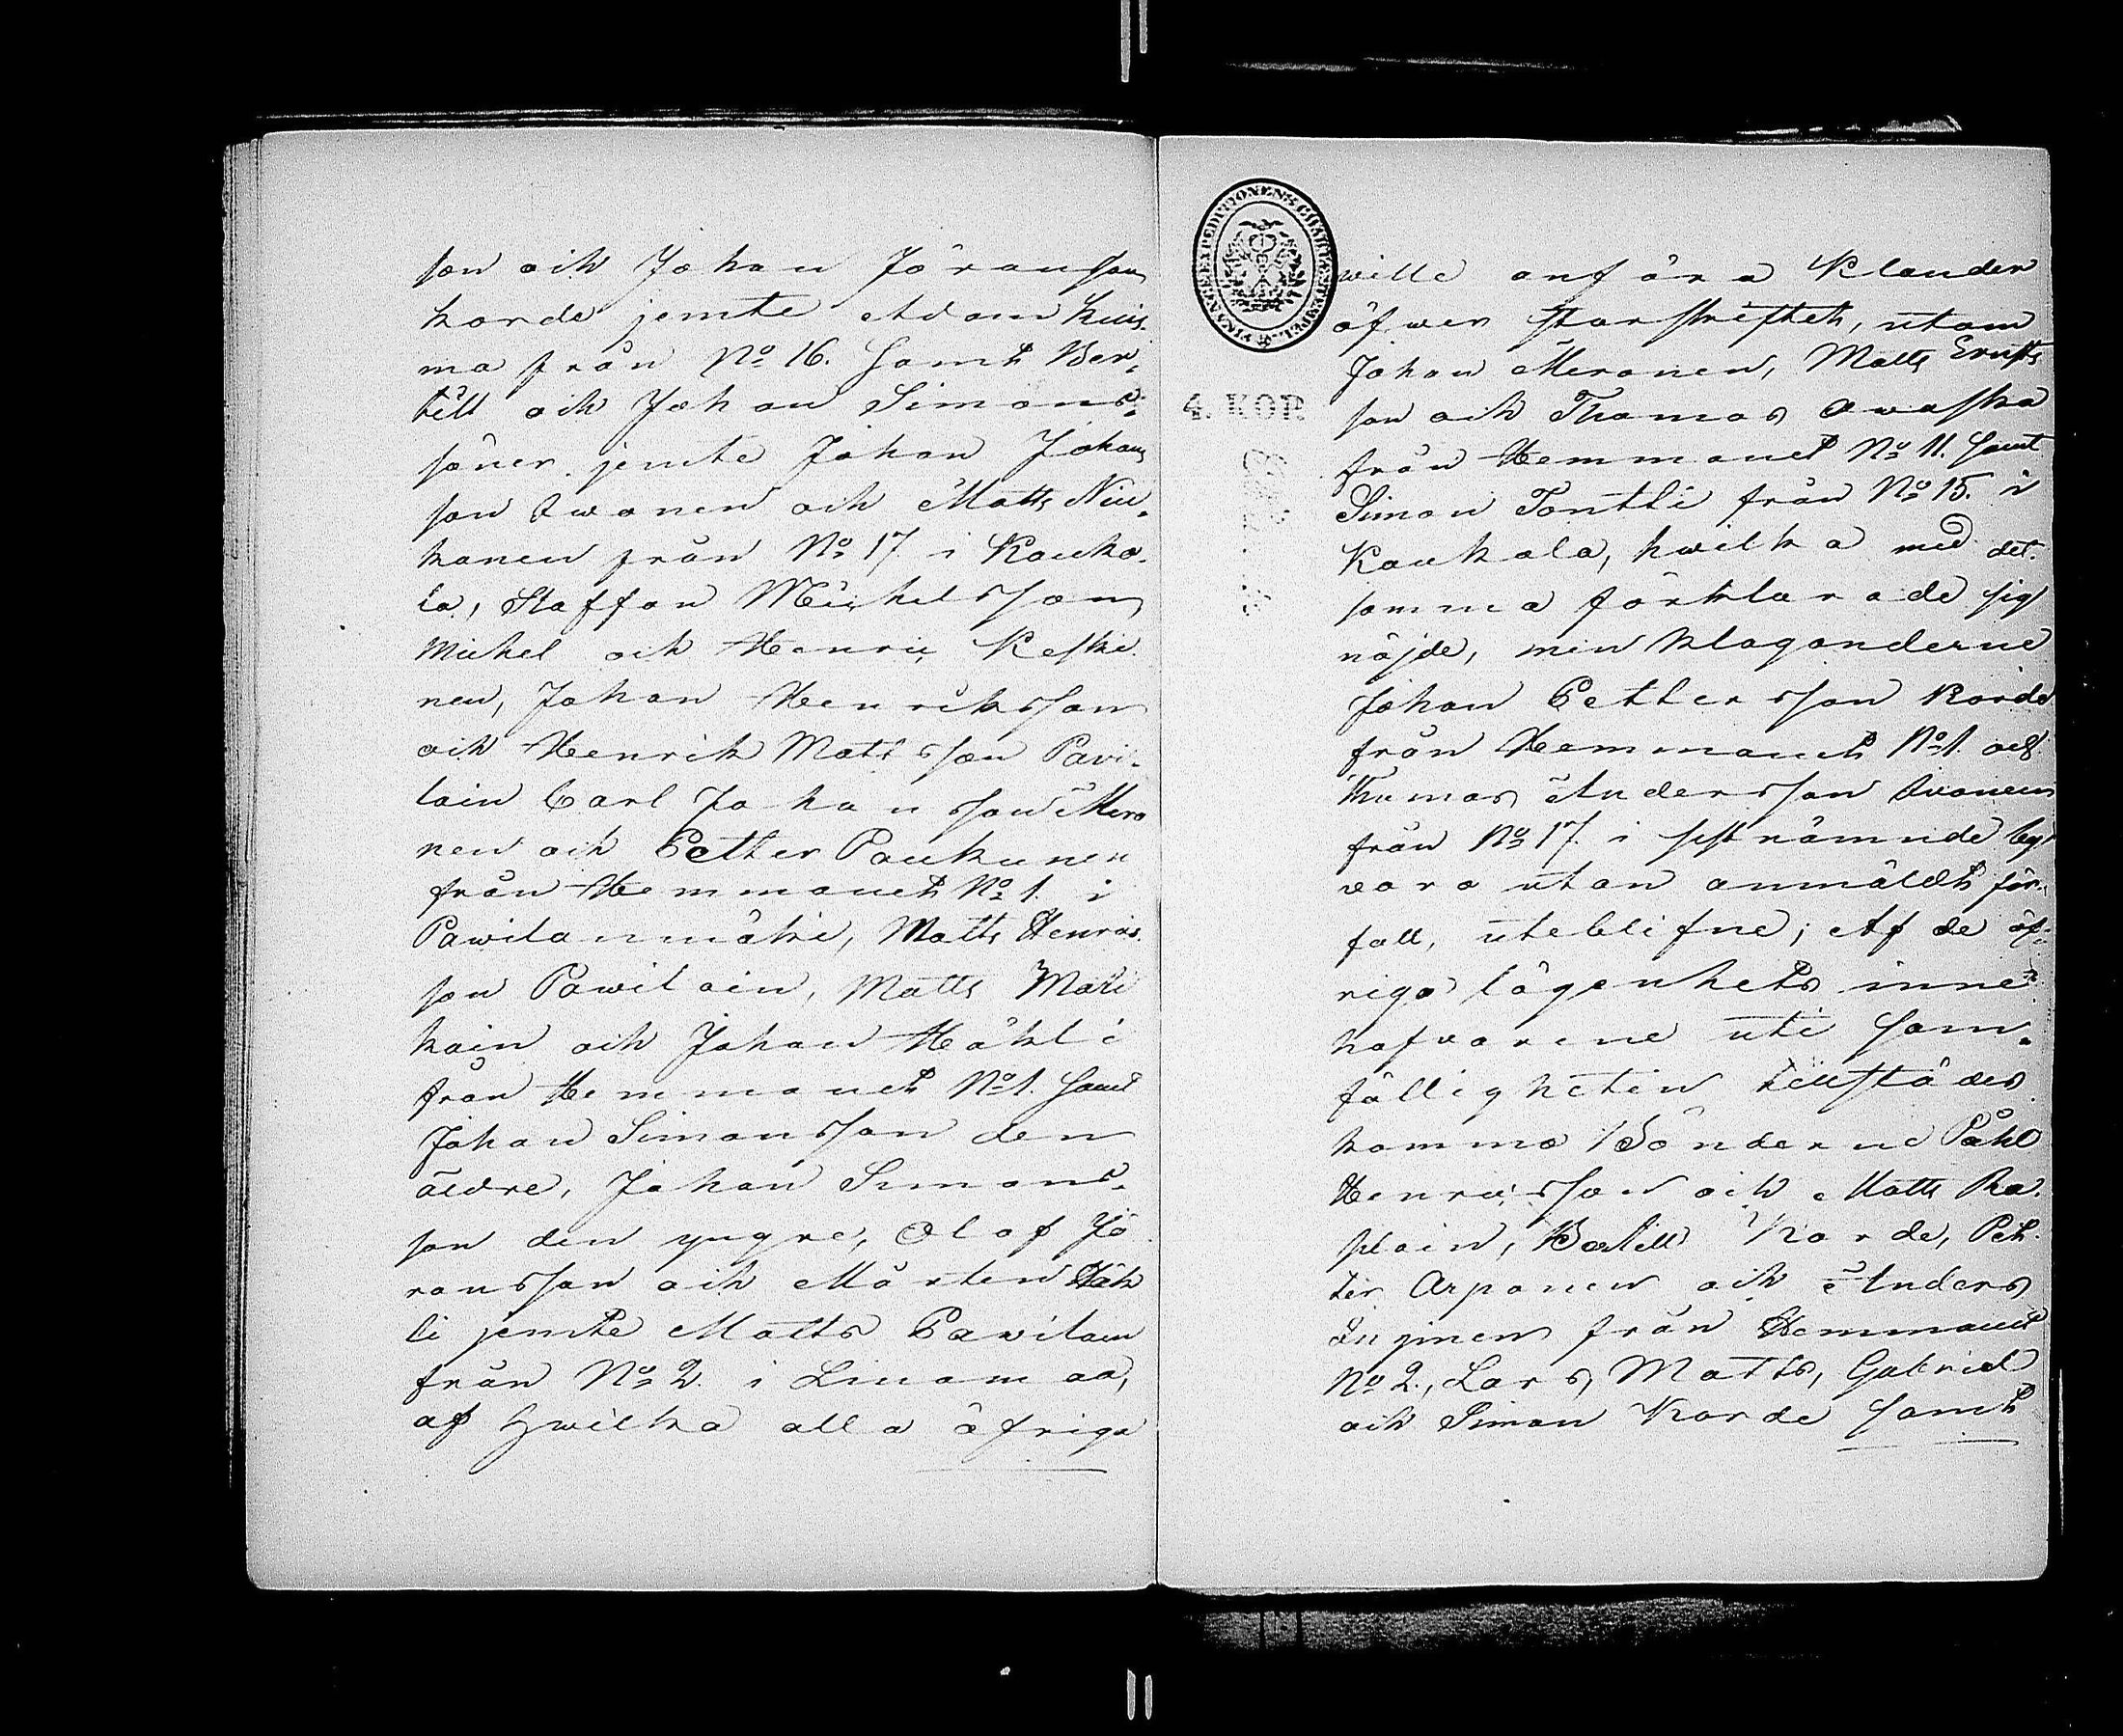 son och Johan Jöransson
Korde jemte Adam Kuis-
ma från No 16. samt Ber-
till och Johan Simons-
söner jemte Johan Johans
son Iwonen och Matts Niu-
kanen från No 17 i Kauko-
la, Staffan Michelsson
Michel och Henric Keski-
nen, Johan Henriksson
och Henrik Mattsson Pavi-
lain Carl Johansson Mero
nen och Petter Paukunen
från Hemmanet No 1. i
Pawilanmäki, Matts Henrics-
son Pawilain, Matts Mati
kain och Johan Hähli
från Hemmanet No 1. samt
Johan Simonsson den
äldre, Johan Simons-
son den yngre, Olof Jö
ransson och Mårten Häh
li jemte Matts Pawilain
från No 2. i Linamaa,
af hwilka alla öfriga
FINANCE EXPEDITIONENS CHARTÆ STEMPEL
4. KOP.
wille anföra klander
öfwer storskiftet, utom
Johan Meronen, Matts Ernsts
son och Thomas Awaska
från Hemmanet No 11. samt
Simon Tontti från No 15. i
Kaukola, hwilka med det-
samma förklarade sig
nöjde, men klaganderne
Johan Pettersson Korde
från Hemmanet No 1. och
Thomas Andersson Iwonen
från No 17. i sistnämnde by
vara utan anmäldt för-
fall, uteblifne; Af de öf-
riga lägenhets inne-
hafvarene uti sam-
fälligheten tillstädes
komma Bönderne Påhl
Henricsson och Matts Ra-
plain, Bertill Korde, Pet-
ter Arponen och Anders
från Hemmanet
No 2., Lars, Matts, Gabriel
och Simon Korde samt